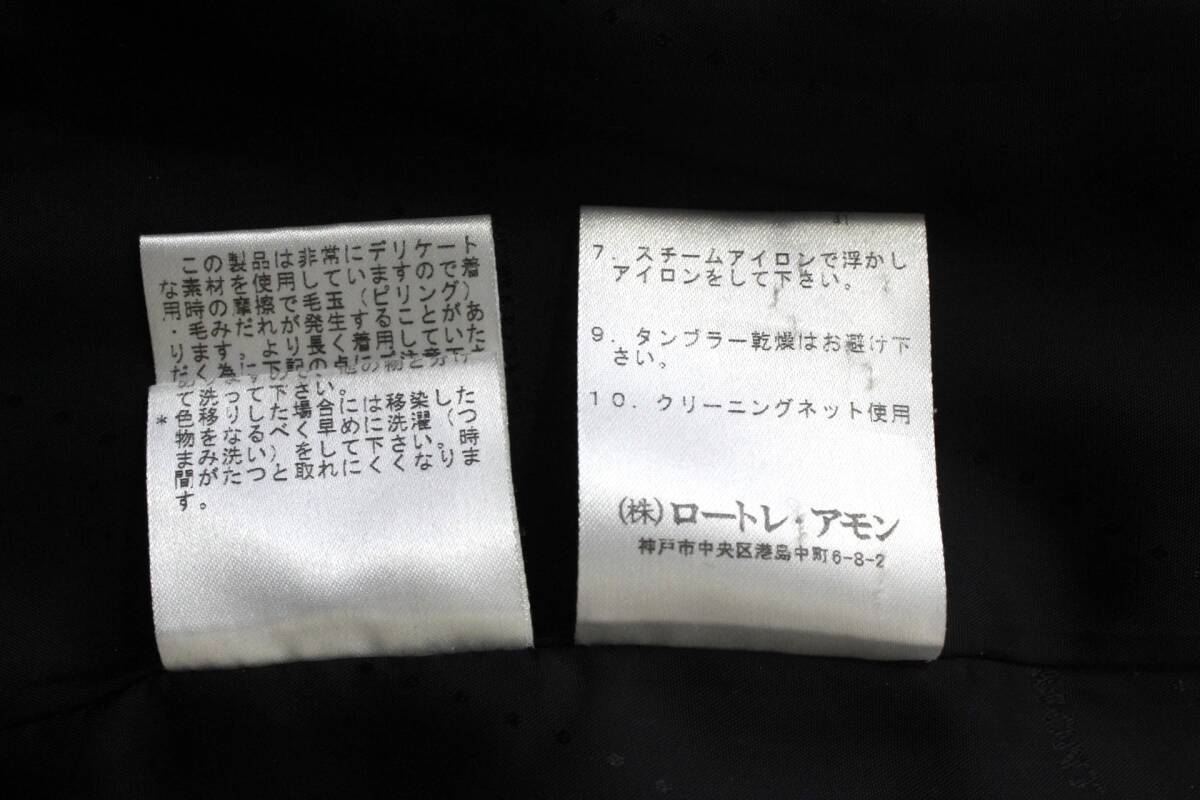 この製品は非常にデリケート
な素材を使用していますので着
用時の摩擦で毛玉(ピリング)
・毛みだれが発生することがあ
ります。より長く着用していた
だく為に下記の点に
さい。
* 色移りした場合には移染した
物をなるべく早めに洗濯(つ
まみ洗い)をして下さい。時
間がたつと取れにくくなりま
す。
7. スチームアイロンで浮かし
アイロンをして下さい。
9. タンブラー乾燥はお避け下
さい。
10. クリーニングネット使用
(株)ロートレ・アモン
神戸市中央区港島中町6-8-2